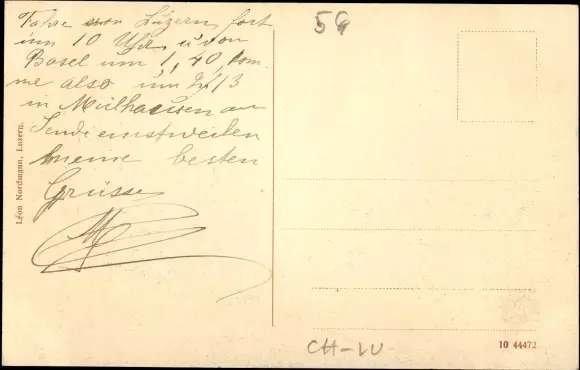 Fahre von Luzern fort
um 10 Uhr, u von
Basel um 1,40, kom-
me also um 2/13
in Mülhausen an
Sende einstweilen
meine besten
Grüsse
Léon Nordmann, Luzern.
56
CH-LU
10 44472